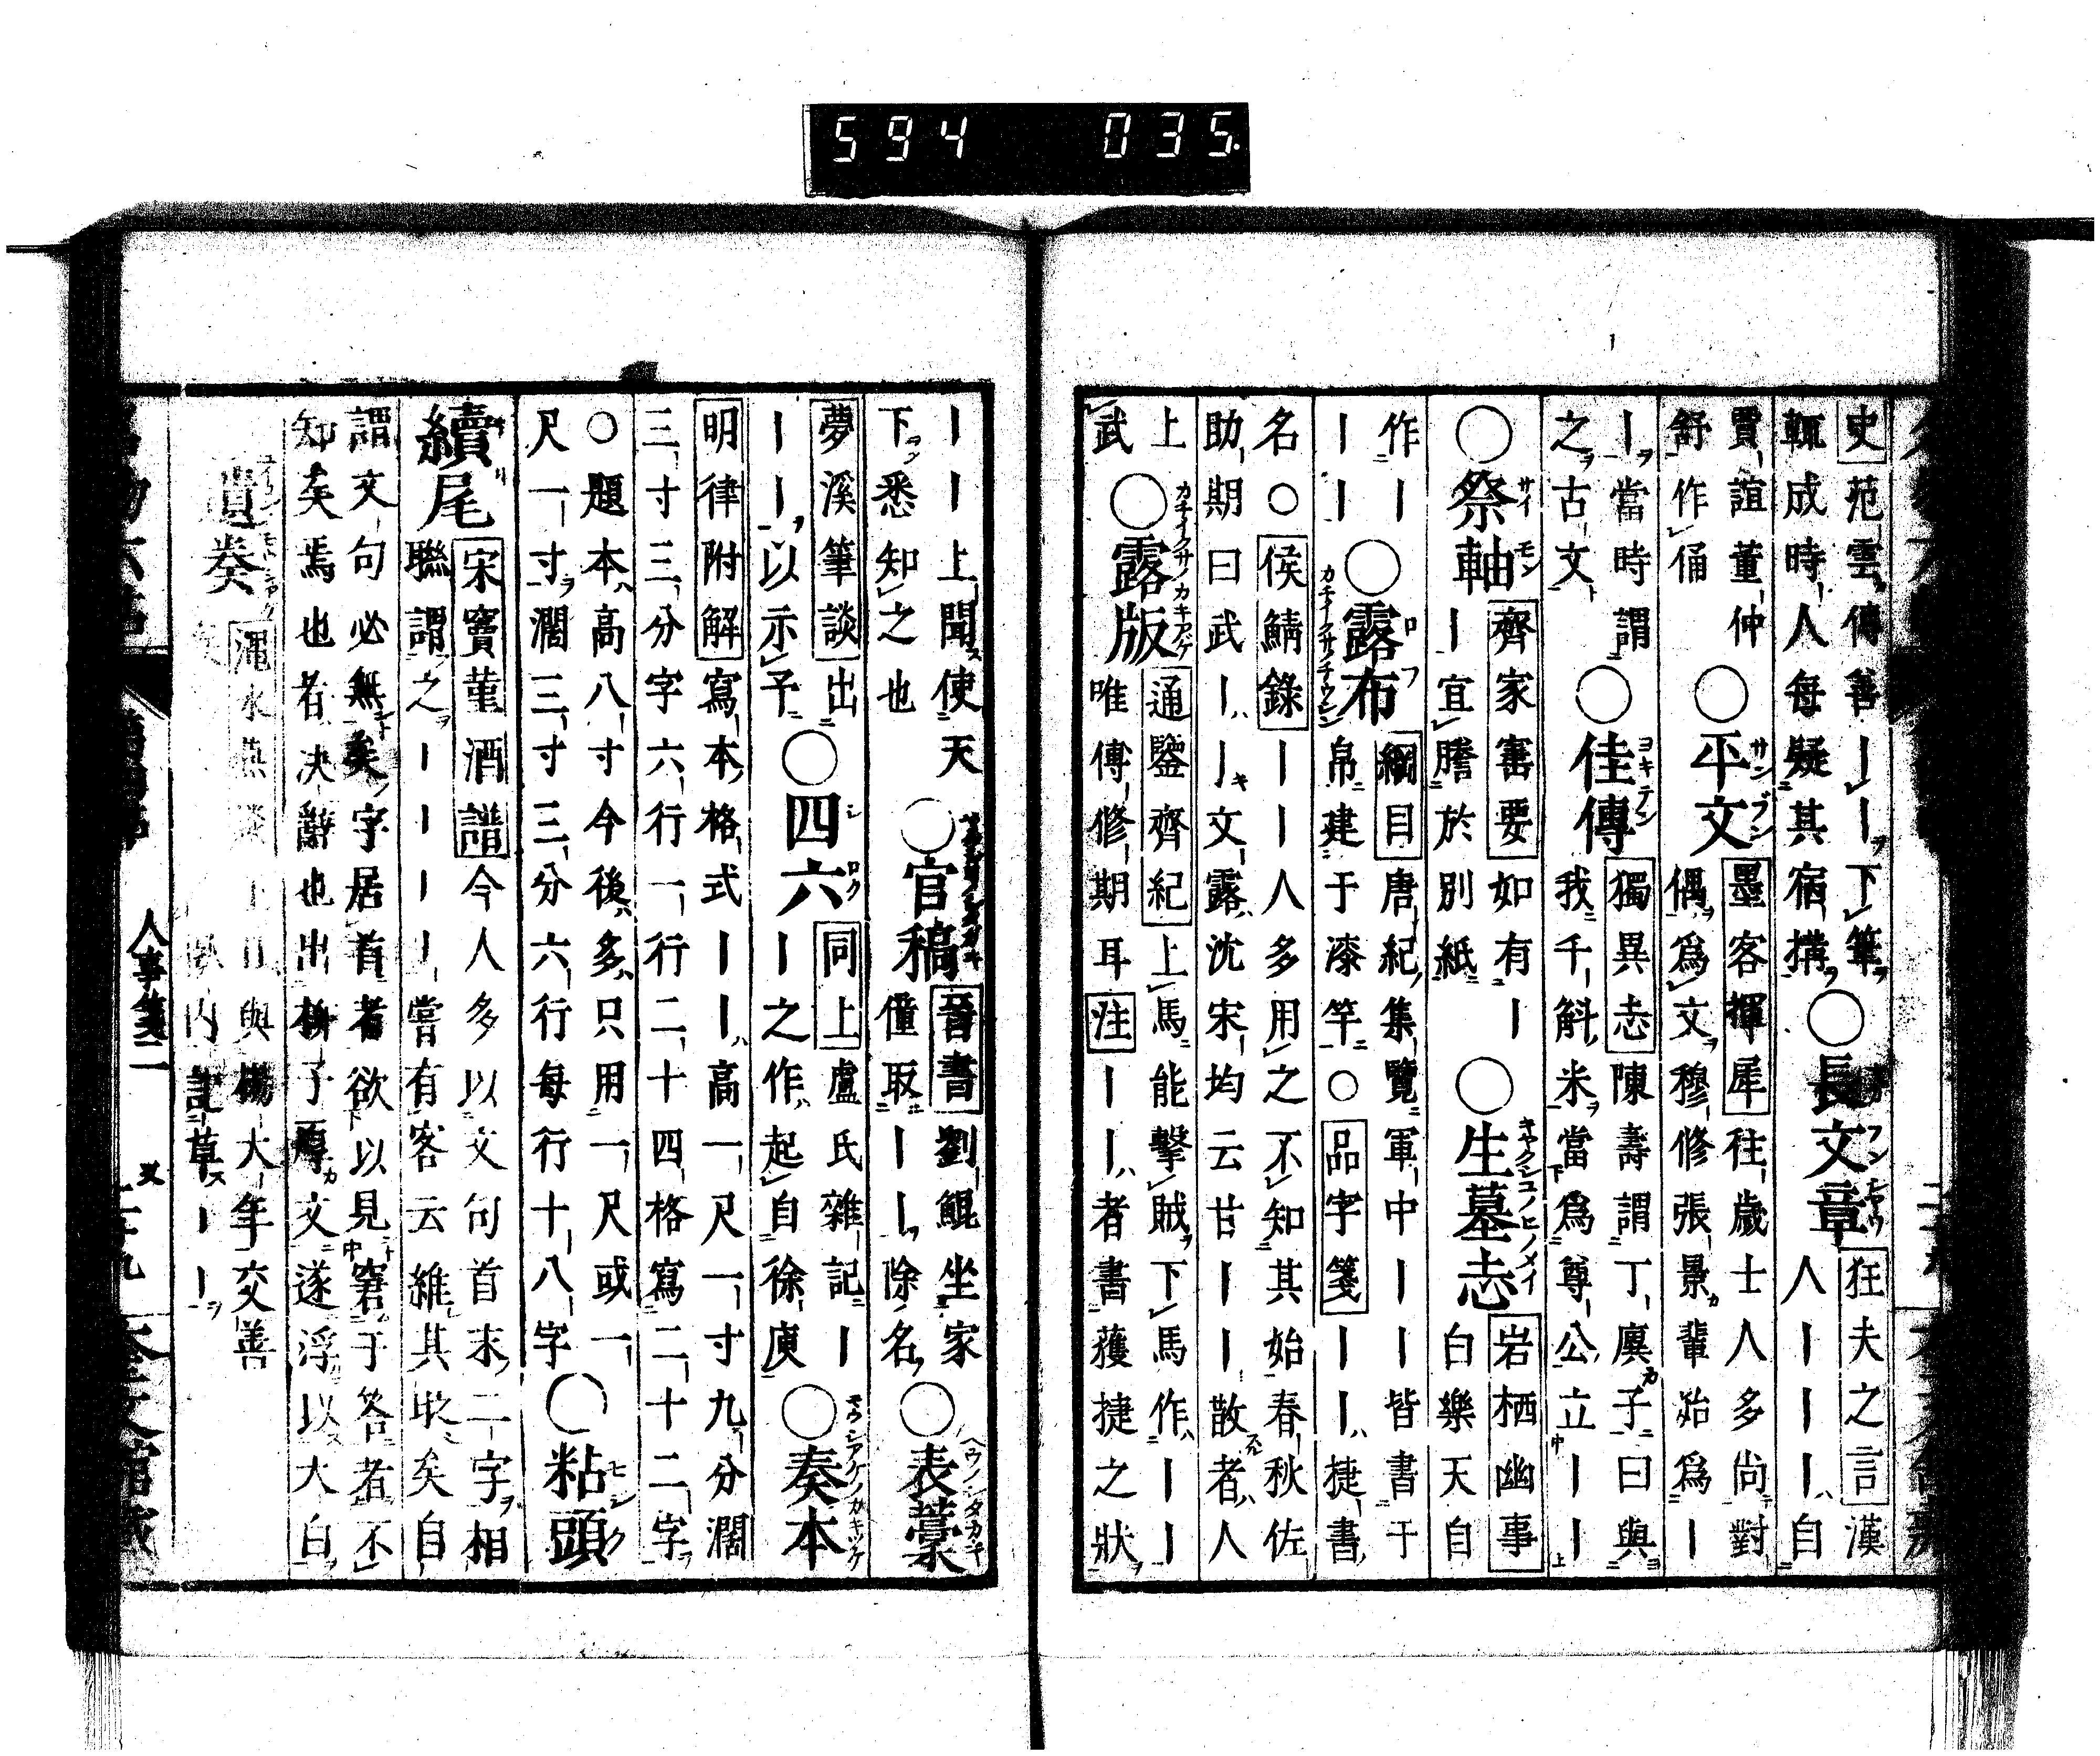 594 035.
史范雲傳善｜｜下筆
輒成時人每疑其宿搆
○長文章
狂夫之言漢
人｜｜｜自
賈誼董仲
舒作俑
○平文
サンブン
墨客揮犀往歲士人多尚對
偶爲文穆修張景輩始爲｜
｜當時謂
之古文
○佳傳
ヨキテン
獨異志陳壽謂丁廙子曰與
我千斛米當爲尊公立｜｜
○祭軸
サイモン
齊家寶要如有｜
｜宜謄於別紙
○生墓志
キヤクシユノヒノメイ
岩栖幽事
白樂天自
作｜
｜｜
○露布
ロフ
カチイクサノチウシン
綱目唐紀集覽軍中｜｜皆書于
帛建于漆竿○品字箋｜｜捷書
名○侯鯖錄｜｜人多用之不知其始春秋佐
助期曰武｜｜文露沈宋均云甘｜｜散者人
上
武
○露版
カチイクサノカキアゲ
通鑒齊紀上馬能擊賊下馬作｜｜
唯傅修期耳注｜｜者書獲捷之狀
｜｜上聞使天
下悉知之也
○官稿
晉書劉鯤坐家
僮取｜｜除名
○表藁
ヘウノシタカキ
夢溪筆談出
｜｜以示予
○四六
シロク
同上盧氏雜記｜
｜之作起自徐庾
○奏本
モウシアケノカキツケ
明律附解寫本格式｜｜高一尺一寸九分濶
三寸三分字六行一行二十四格寫二十二字
○題本高八寸今後多只用一尺或一
尺一寸濶三寸三分六行每行十八字
○粘頭
續尾
宋竇革酒譜今人多以文句首末二字相
聯謂之｜｜｜｜嘗有客云維其時矣自
謂文句必無矣字居首者欲以見窘于答者不
知矣焉也者決辭也出柳子厚文遂浮以大白
遺奏
澠水燕談
與楊大年交善
内記草｜｜
人事箋二